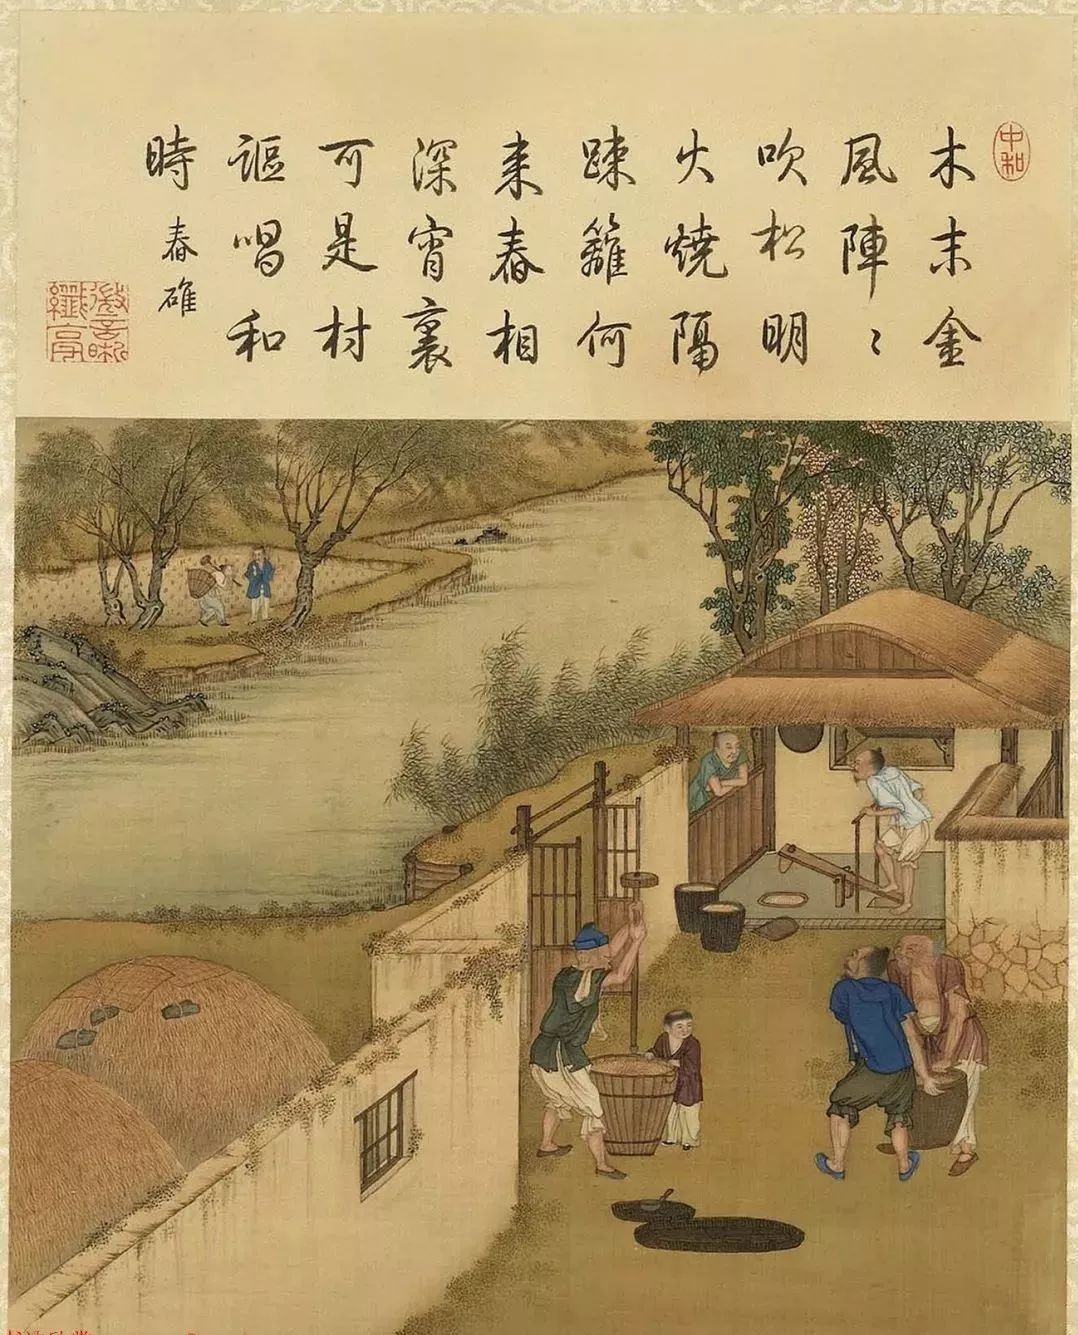 中和
木末金
風陣〻
吹松明
火燒隔
踈籬何
来舂相
深宵裏
可是村
謳唱和
時 舂碓